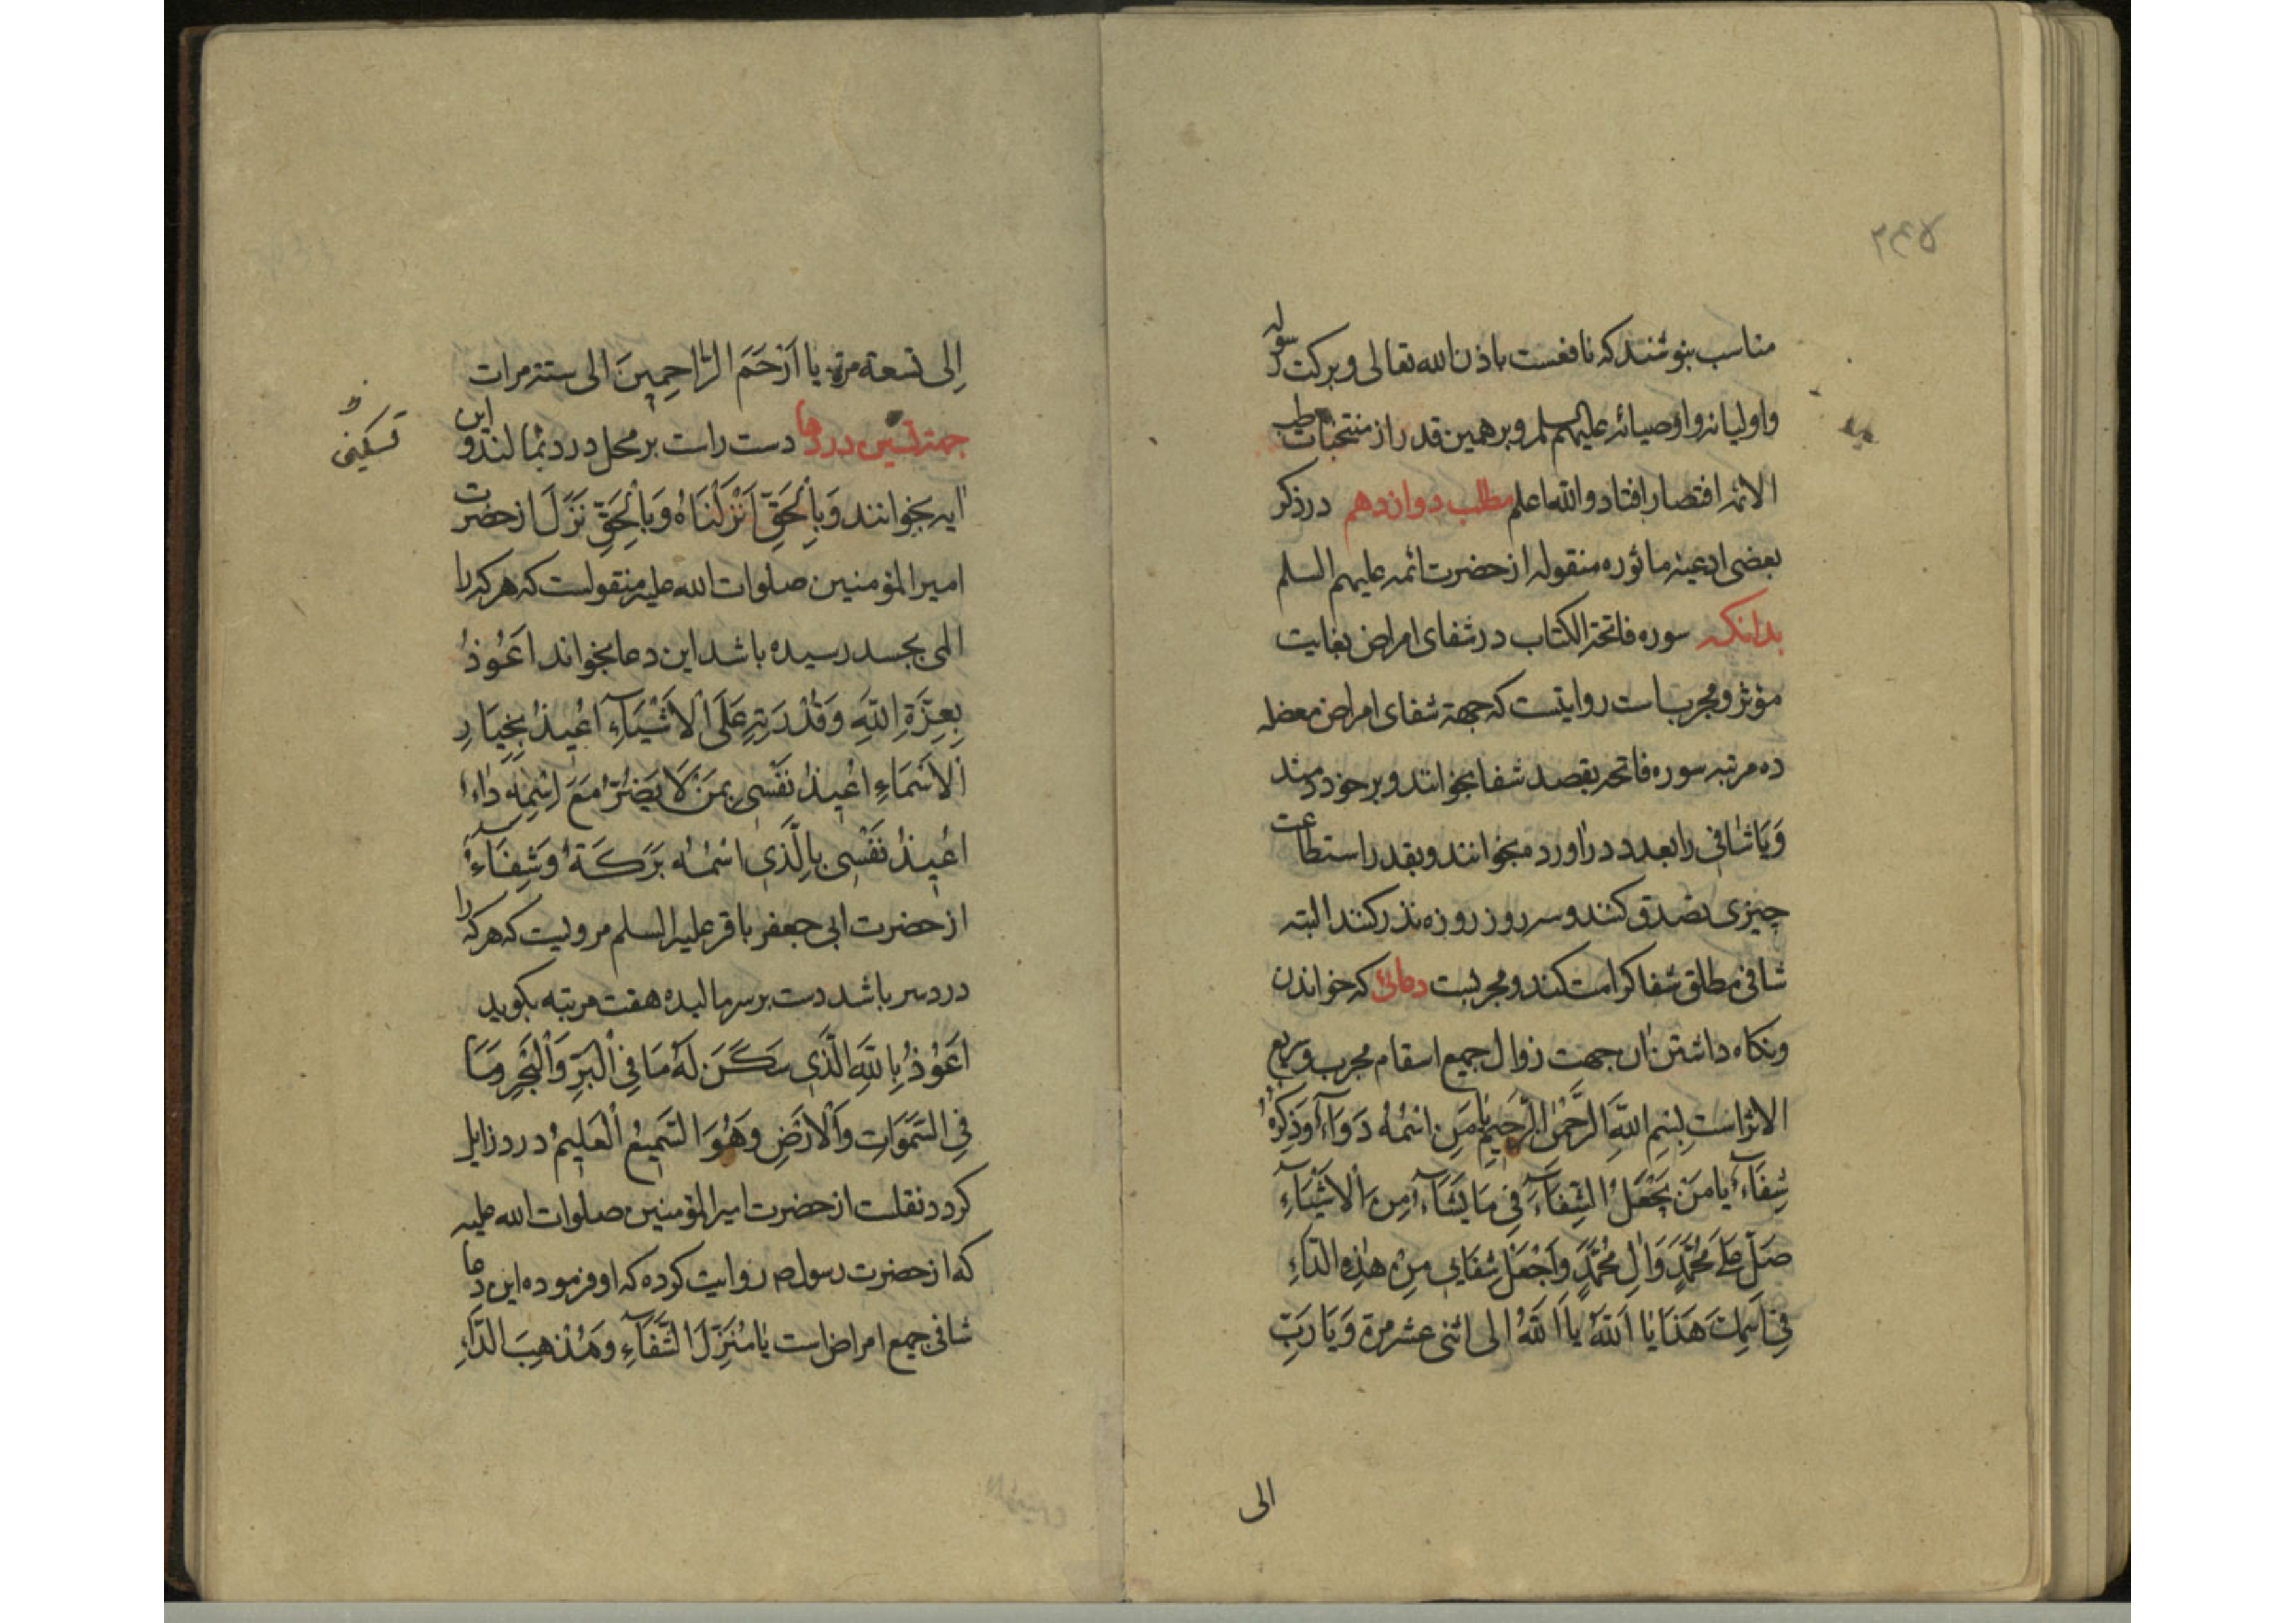 مناسب بنوشند که نافعست باذن الله تعالی وبرکت رسوله
واولیائه واوصیائه علیهم السلم وبرهمین قدر از منتخبات طب
الائمه اقتصار افتاد والله اعلم مطلب دوازدهم در ذکر
بعضی ادعیه ماثوره منقوله از حضرت ائمه علیهم السلم
بدانکه سوره فاتحة الکتاب در شفای امراض بغایت
مؤثر ومجربست روایتست که جهة شفای امراض معضله
ده مرتبه سوره فاتحه بقصد شفا بخوانند وبر خود دمند
وَیَا شَافی را بعدد در اورد میخوانند وبقدر استطاعت
چیزی تصدق کنند وسه روز روزه نذر کنند البته
شافی مطلق شفا کرامت کند ومجربست دعائی که خواندن
ونکاه داشتن ان جهت زوال جمیع اسقام مجرب وسریع
الاثر است بِسْمِ اللَّهِ الرَّحْمٰنِ الرَّحِيمِ يَا مَنِ اسْمُهُ دَوَآءٌ وَذِكْرُهُ
شِفَآءٌ يَا مَنْ يَجْعَلُ الشِّفَآءَ فِي مَا يَشَآءُ مِنَ الْأَشْيَآءِ
صَلِّ عَلَى مُحَمَّدٍ وَآلِ مُحَمَّدٍ وَاجْعَلْ شِفَايِي مِنْ هٰذِهِ الدَّآءِ
فِي اسْمِكَ هَذَا يَا اَللّٰهُ يَا اَللّٰهُ الی اثنی عشر مرة وَيَا رَبِّ
الی
اِلی تسعة مرة یا اَرْحَمَ الرَّاحِمِینَ الی ستة مرات
جهة تسکین دردها دست راست بر محل درد بمالند و این
تسکین
ایه بخوانند وَبِالْحَقِّ اَنْزَلْنَاهُ وَبِالْحَقِّ نَزَلَ از حضرت
امیر المؤمنین صلوات الله علیه منقولست که هر که را
المی بجسد رسیده باشد این دعا بخواند اَعُوذُ
بِعِزَّةِ اللَّهِ وَقُدْرَتِهِ عَلَى الْأَشْيَآءِ اُعِيذُ بِجَبَّارِ
الْاَسْمَاءِ اُعِيذُ نَفْسِي بِمَنْ لَا يَضُرُّ مَعَ اسْمِهِ دَاءٌ
اُعِيذُ نَفْسِي بِالَّذِي اسْمُهُ بَرَكَةٌ وَشِفَآءٌ
از حضرت ابی جعفر باقر علیه السلم مرویست که هر که را
درد سر باشد دست بر سر مالیده هفت مرتبه بکوید
اَعُوذُ بِاللَّهِ الَّذِي سَكَنَ لَهُ مَا فِي الْبَرِّ وَالْبَحْرِ وَمَا
فِي السَّمٰوَاتِ وَالْاَرْضِ وَهُوَ السَّمِيعُ الْعَلِيمُ درد زایل
کردد نقلست از حضرت امیر المؤمنین صلوات الله علیه
که از حضرت رسول ص روایت کرده که او فرموده این دعا
شافی جمیع امراض است يَا مُنَزِّلَ الشِّفَآءِ وَمُذْهِبَ الدَّآءِ